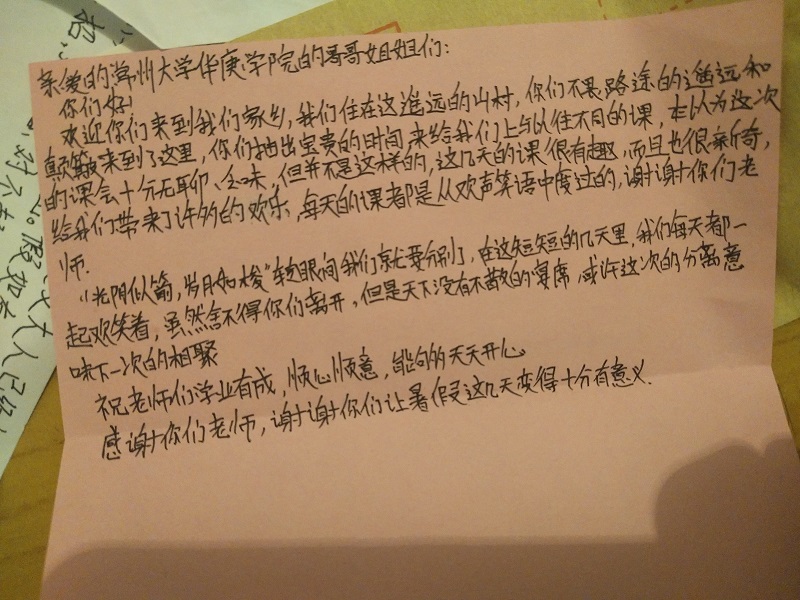 亲爱的常州大学华庚学院的哥哥姐姐们:
你们好!
欢迎你们来到我们家乡,我们住在这遥远的山村,你们不畏路途的遥远和
颠簸来到了这里,你们抽出宝贵的时间来给我们上与以往不同的课,本以为这次
的课会十分无聊、乏味,但并不是这样的,这几天的课很有趣,而且也很新奇,
给我们带来了许多的欢乐,每天的课都是从欢声笑语中度过的,谢谢你们老
师.
"光阴似箭,岁月如梭"转眼间我们就要分别了,在这短短的几天里,我们每天都一
起欢笑着,虽然舍不得你们离开,但是天下没有不散的宴席,或许这次的分离意
味下一次的相聚
祝老师们学业有成,顺心顺意,能够天天开心
感谢你们老师,谢谢你们让暑假这几天变得十分有意义.